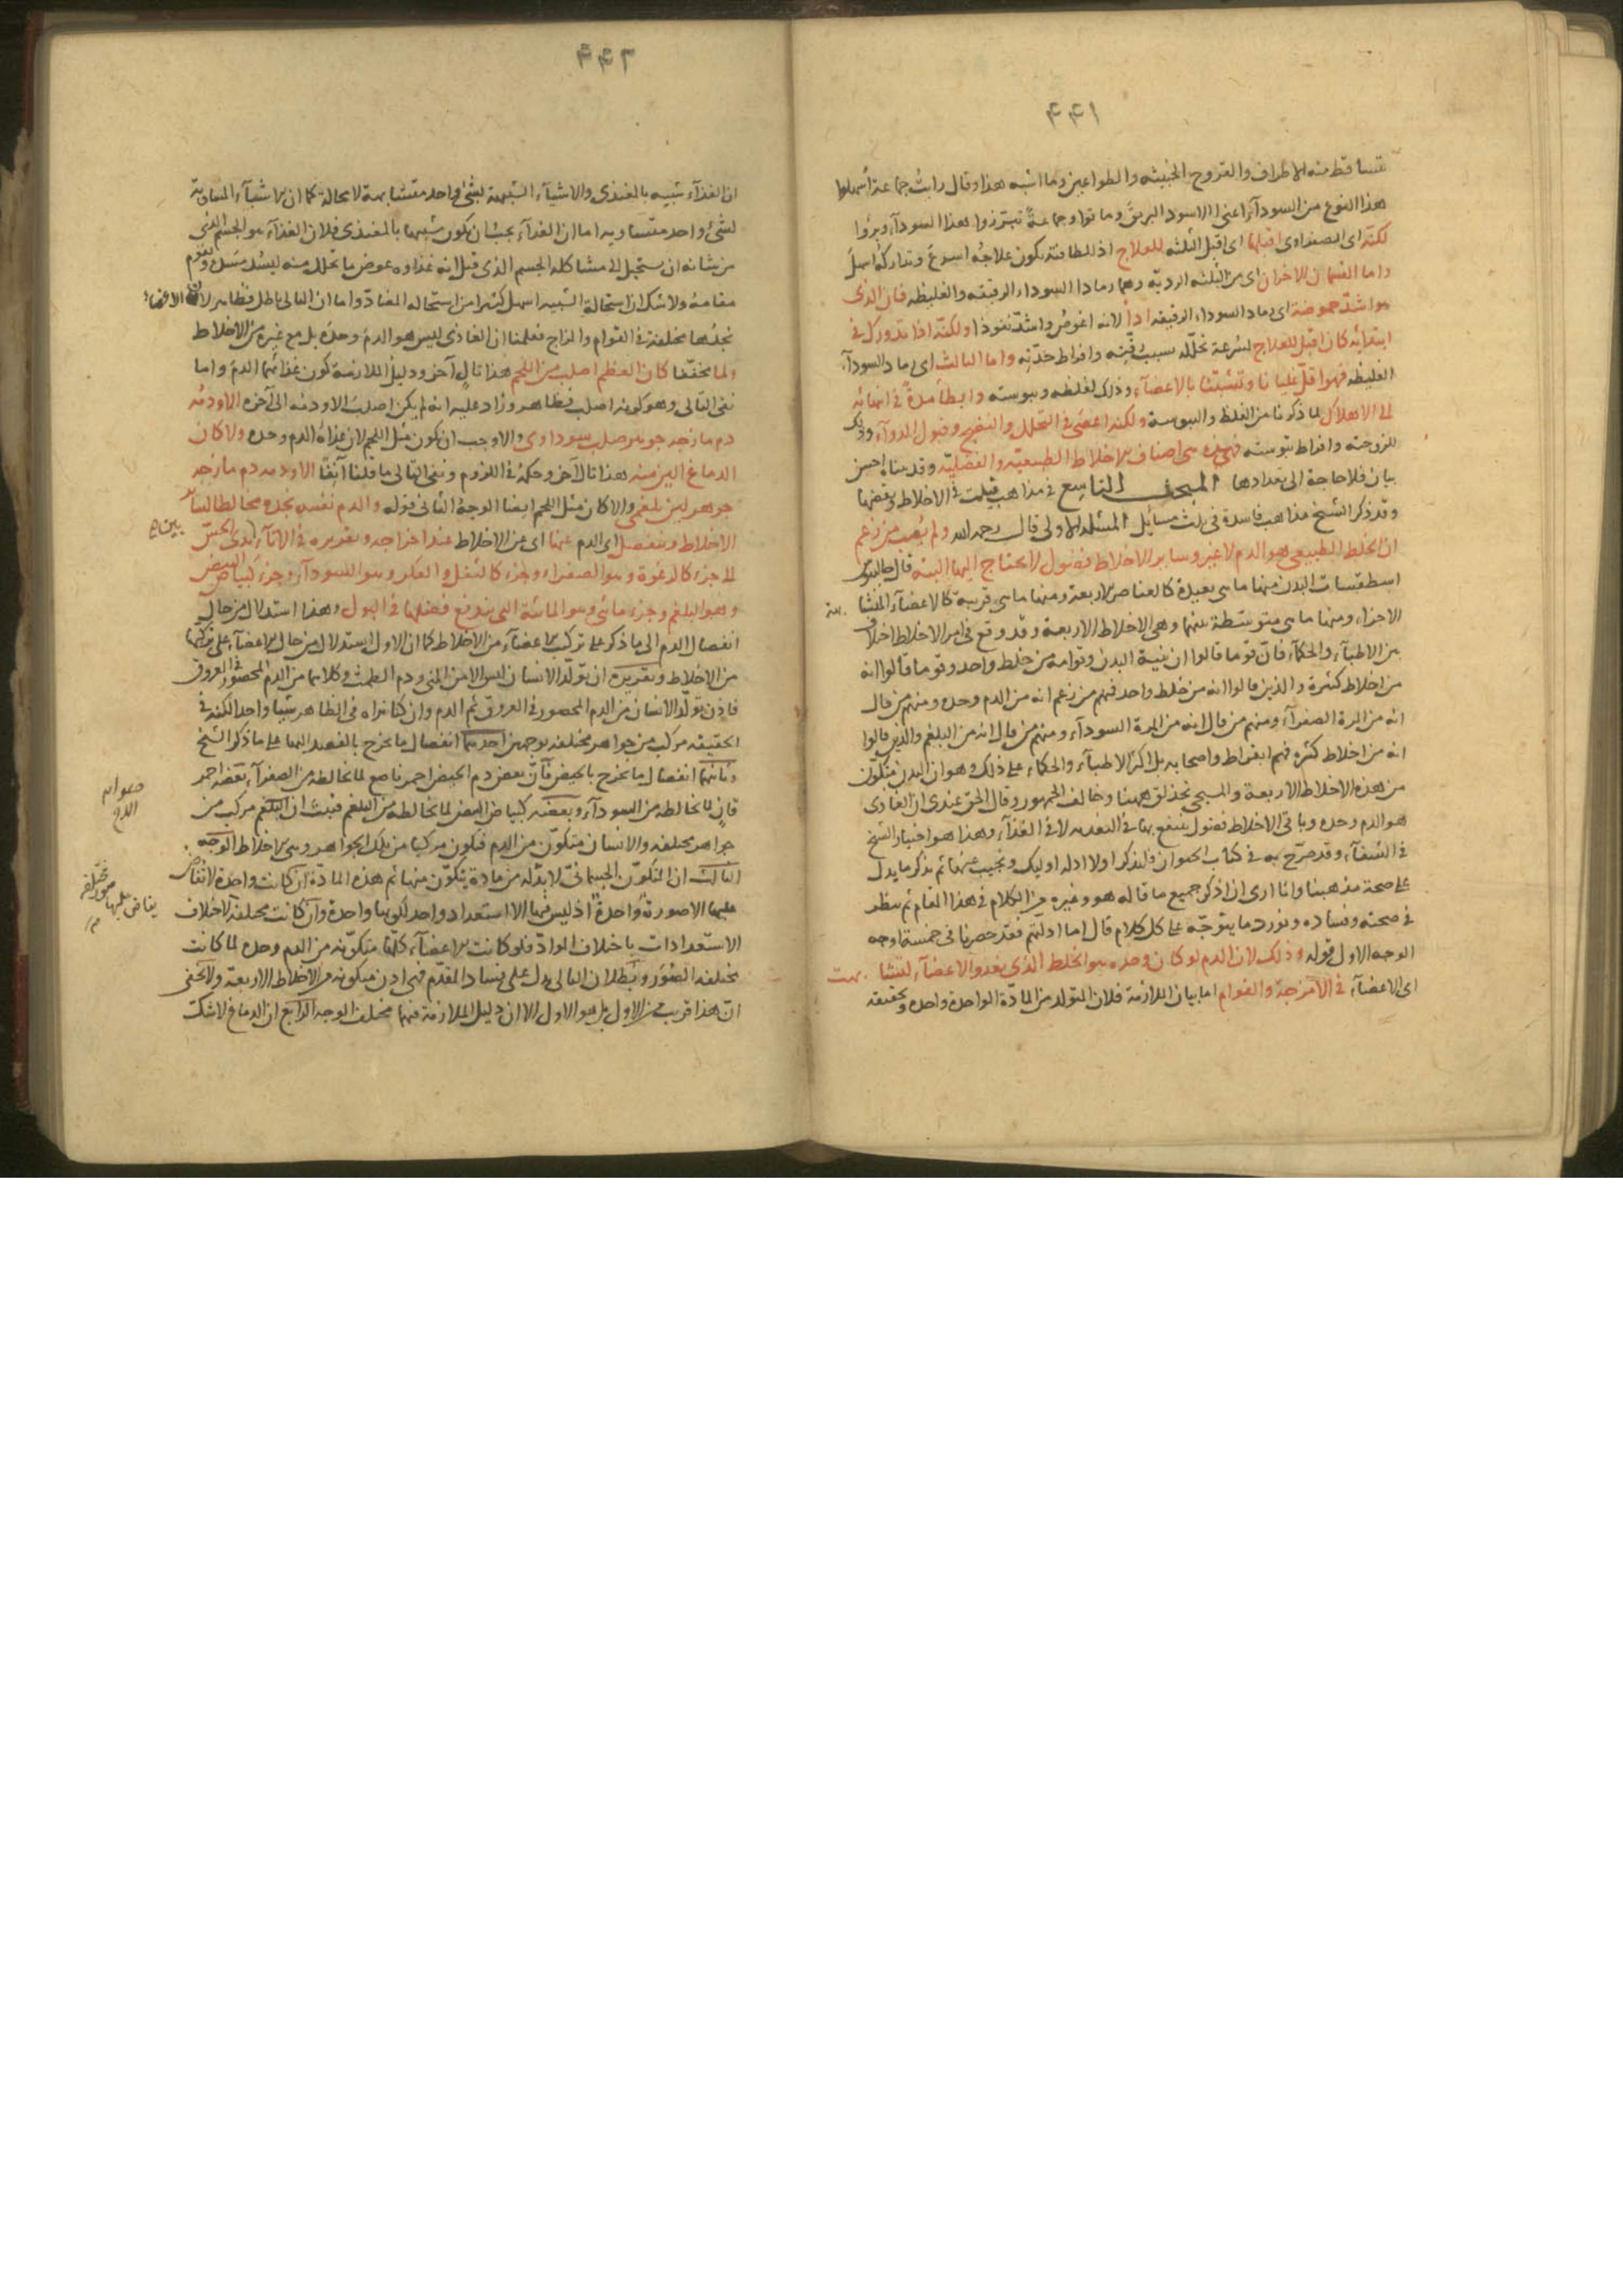 ٤٤١
تتساقط منه الاطراف والقروح الخبيثه والطواعين وما اشبه هذا وقال رايتُ جماعة اُسهلوا
هذا النوع من السودآء اعنى الاسود البريق وماتوا وجماعةً تبرزوا هذا السودآء وبرؤا
لكنّه اى الصفراوى اقبلها اى اقبل الثلثه للعلاج اذ للطافته يكون علاجُه اسرعَ وتداركه اسهلَ
واما القسمان الاخران اى من الثلثه الرديّه وهما رمادا السوداء الرقيقه والغليظه فان الذى
هو اشدّ حموضة اى رماد السوداء الرقيقه اردأ لانه اغوصُ واشدّ نفوذا ولكنّه اذا تدورك فى
ابتدايه كان اقبل للعلاج لسرعة تحلّله بسبب رقّته وافراط حدّته واما الثالث اى رماد السودآء
الغليظه فهو اقلّ غليانا وتشبّثا بالاعضآء وذلك لغلظه ويبوسته وابطأ مدةً فى انهائه
الى الاهلاك لما ذكرنا من الغلظ واليبوسة ولكنه اعصَى فى التحلل والنضج وقبول الدوآء وذلك
للزوجته وافراط يبوسته فهذه هى اصناف الاخلاط الطبيعيّه والفضليّه وقد بيناه احسن
بيان فلا حاجة الى تعدادها المبحث التاسع فى مذاهب قيلت فى الاخلاط ونقضها
وقد ذكر الشيخ مذاهب فاسدة فى ثلث مسائل المسئله الاولى قال رحمه الله ولم يُصب من زعم
ان الخلط الطبيعى هو الدم لا غير وساير الاخلاط فضول لا يحتاج اليها البته قال جالينوس
اسطقسات البدن منها ما هى بعيدة كالعناصر الاربعة ومنها ما هى قريبة كالاعضآء المتشابهة
الاجزاء ومنها ما هى متوسّطة بينهما وهى الاخلاط الاربعة وقد وقع فى امر الاخلاط اختلاف
بين الاطبآء والحكمآء فانّ قوما قالوا ان بنية البدن وقوامه من خلط واحد وقوما قالوا انه
من اخلاط كثيرة والذين قالوا انه من خلط واحد فمنهم من زعم انه من الدم وحده ومنهم من قال
انه من المرة الصفرآء ومنهم من قال انه من المرة السودآء ومنهم من قال انه من البلغم والذين قالوا
انه من اخلاط كثيره فهم ابقراط واصحابه بل اكثر الاطبآء والحكماء على ذلك وهو ان البدن متكوّن
من هذه الاخلاط الاربعة والمسيحى تحذلق ههنا وخالف الجمهور وقال الحق عندى ان الغاذى
هو الدم وحده وباقى الاخلاط فضول ينتفع بها فى التغذيه لا فى الغذآء وهذا هو اختيار الشيخ
فى الشفآء وقد صرّح به فى كتاب الحيوان ولنذكر اولا ادله اوليك ونجيب عنها ثم نذكر ما يدل
على صحة مذهبنا وانا ارى ان اذكر جميع ما قاله هو وغيره من الكلام فى هذا المقام ثم ننظر
فى صحته وفساده ونورد ما يتوجّه على كل كلام قال اما ادلّتهم فقد حصرناها فى خمسة اوجه
الوجه الاول قوله وذلك لان الدم لو كان وحده هو الخلط الذى يغذو الاعضآء لتشابهت
اى الاعضآء فى الامزجة والقوام اما بيان الملازمة فلان المتولد من المادّة الواحدة واحد وتحقيقه
٤٤٢
ان الغذآء شبيه بالمغتذى والاشيآء الشبيهة بشئ واحد متشابهة لا محالة كما ان الاشيآء المساوية
لشئ واحد متساوية اما ان الغذآء يجب ان يكون شبيها بالمغتذى فلان الغذآء هو الجسم الذى
من شانه ان يستحيل الى مشاكلة الجسم الذى قيل انه غذاوه عوض ما تحلل منه ليسُدّ مَسَدّه ويقوم
مقامهُ ولا شك ان استحالة الشبيه اسهل كثيرا من استحالة المضادّ واما ان التالى باطل فظاهر لان الاعضاء
نجدُها مختلفة فى القوام والمزاج فعلمنا ان الغاذى ليس هو الدمَ وحدَه بل مع غيره من الاخلاط
ولما تحققنا كان العظم اصلب من اللحم هذا تالٍ آخر ودليل الملازمة كون غذائهما الدم واما
نفى التالى وهو كونه اصلب فظاهر وزاد عليه انه لم يكن اصلبَ الاو دمُه الى آخره الاو دمُه
دم مازجه جوهر صلب سوداوى والا وجب ان يكون مثل اللحم لان غذاءه الدم وحده ولا كان
الدماغ الين منه هذا تالٍ آخر وحكمه فى اللزوم ونفى التالى ما قلنا آنفًا الاو دمه دم مازجه
جوهر لين بلغمى والا كان مثل اللحم ايضا الوجهُ الثانى قوله والدم نفسه نجده مخالطا لساير
الاخلاط وينفصل اى الدم عنها اى عن الاخلاط عند اخراجه وتقريره فى الانآء بين يدى الحِسّ
الى جزء كالرغوة وهو الصفراء وجزء كالثفل والعكر وهو السودآء وجزء كبياض البيض
وهو البلغم وجزء مائى وهو المائيّة التى يندفع فضلها فى البول وهذا استدلال من حال
انفصال الدم الى ما ذكر على تركب الاعضآء من الاخلاط كما ان الاول استدلال من حال الاعضآء على تركبها
من الاخلاط وتقريره ان تولّد الانسان ليس الا من المنى ودم الطمث وكلاهما من الدم المحصور فى العروق
فاذن تولّد الانسان من الدم المحصور فى العروق ثم الدم وان كنا نراه فى الظاهر شيا واحدا لكنه فى
الحقيقه مركب من جواهر مختلفه لوجهين احدهما انفصال ما يخرج بالفصد اليها على ما ذكر الشيخ
وثانيهما انفصال ما يخرج بالحيض فانّ بعض دم الحيض احمر ناصع لما يخالطه من الصفرآء وبعضه احمر
قانٍ لما يخالطه من السودآء وبعضه كبياض البيض لما يخالطه من البلغم فيثبت ان الدم مركب من
جواهر مختلفه والانسان متكوّن من الدم فيكون مركبا من تلك الجواهر وهى الاخلاط الوجه
الثالث ان المتكوّن الجسمانىّ لا بدّ له من مادة يتكوّن منها ثم هذه المادّة ان كانت واحدة لا تفاض
عليها الا صورة واحدة اذ ليس فيها الا استعداد واحد لكونها واحدة وان كانت مختلفة لاختلاف
الاستعدادات باختلاف الموادّ فلو كانت الاعضآء كلّها متكوّنه من الدم وحده لما كانت
مختلفه الصُوَر وبطلان التالى يدل على فساد المقدّم فهى اذن متكونه من الاخلاط الاربعة ولا يخفى
ان هذا قريب من الاول بل هو الاول الا ان دليل الملازمة فيهما مختلف الوجه الرابع ان الدماغ لا شك
صوابه
الدم
يفاض عليها صور مختلفه